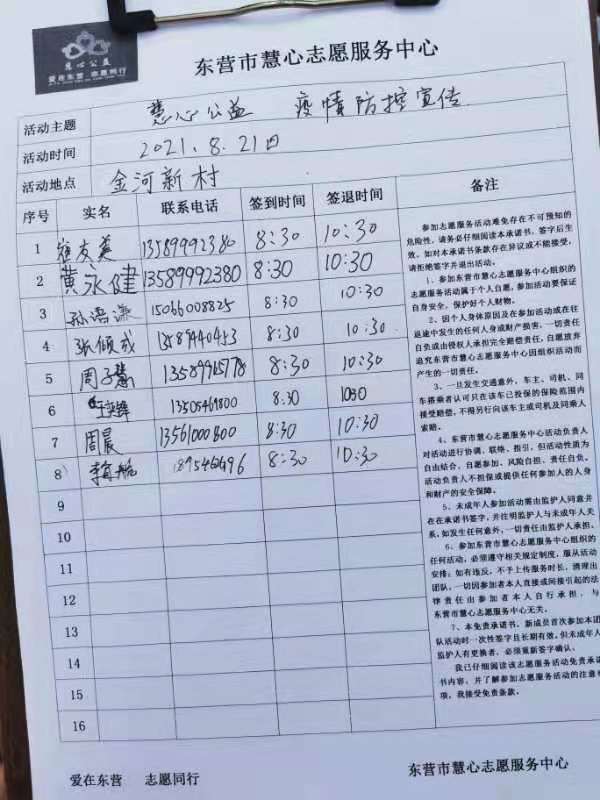 慧心公益
爱在东营 志愿同行
东营市慧心志愿服务中心
活动主题 慧心公益 疫情防控宣传
活动时间 2021.8.21日
活动地点 金河新村
序号 实名 联系电话 签到时间 签退时间 备注
1 崔友美 13589992380 8:30 10:30
2 黄永健 13589992380 8:30 10:30
3 孙浩 15066008825 8:30 10:30
4 8:30 10:30
5 周子慧 8:30 10:30
6 8:30 1030
7 周晨 8:30 10:30
8 8:30 10:30
9
10
11
12
13
14
15
16
参加志愿服务活动难免存在不可预知的
危险性，请务必仔细阅读本承诺书。签字后生
效。如对本承诺书条款存在异议或不能接受，
请拒绝签字并退出活动。
1、参加东营市慧心志愿服务中心组织的
志愿服务活动属于个人自愿，参加活动要保证
自身安全，保护好个人财物。
2、因个人身体原因及在参加活动或在往
返途中发生的任何人身或财产损害，一切责任
自负或由侵权人承担完全赔偿责任，自愿放弃
追究东营市慧心志愿服务中心因组织活动而
产生的一切责任。
3、一旦发生交通意外，车主、司机、同
车搭乘者认可只在该车已投保的保险范围内
接受赔偿，不得另行向该车主或司机及同乘人
索赔。
4、东营市慧心志愿服务中心活动负责人
对活动进行协调、联络、指引，但活动性质为
自由结合，自愿参加、风险自担、责任自负。
活动负责人不担保或提供任何参加人的人身
和财产的安全保障。
5、未成年人参加活动需由监护人同意并
在在承诺书签字，并注明监护人与未成年人关
系，如发生任何意外，一切责任由监护人承担。
6、参加东营市慧心志愿服务中心组织的
任何活动，必须遵守相关规定制度，服从活动
安排；如有违反，不予上传服务时长，清理出
团队，一切因参加者本人直接或间接引起的法
律责任由参加者本人自行承担，与
东营市慧心志愿服务中心无关。
7、本免责承诺书，新成员首次参加本团
队活动时一次性签字且长期有效，但未成年人
监护人有更换者，必须重新签字确认。
我已仔细阅读该志愿服务活动免责承诺
书内容，并了解参加志愿服务活动的注意
项，我接受免责条款。
爱在东营 志愿同行 东营市慧心志愿服务中心